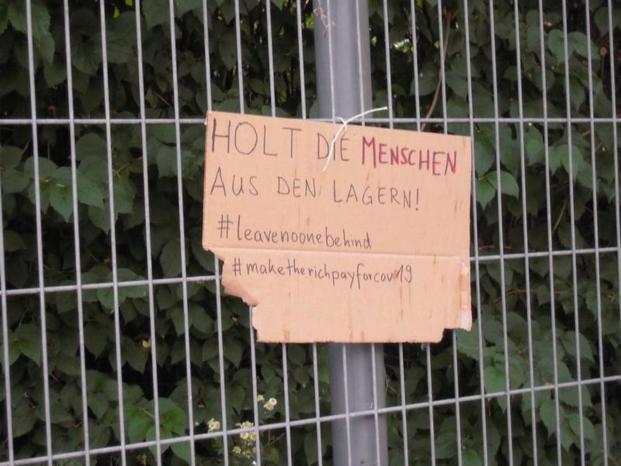 HOLT DIE MENSCHEN
AUS DEN LAGERN!
#leavenoonebehind
#maketherichpayforcov19